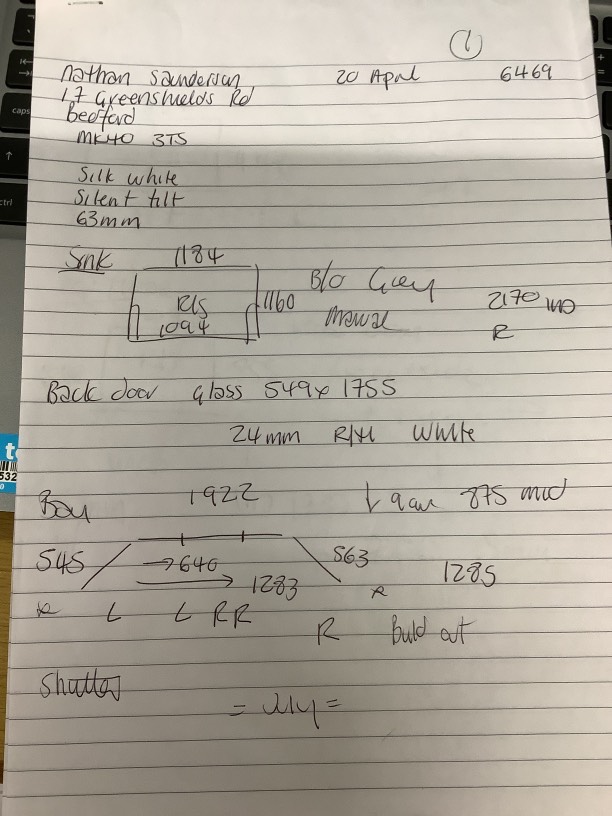 1
Nathan Saunderson 20 April 6469
17 Greenshields Rd
Bedford
MK40 3TS
Silk white
Silent tilt
63mm
Sink 1184
R15 1160 B/o Grey 2170
1094 Manual R
Back door Glass 549x 1755
24mm R/H White
Bay 1922 875 mid
545 → 640 563
→ 1283 R 1285
R L L RR
R Build out
Shutter